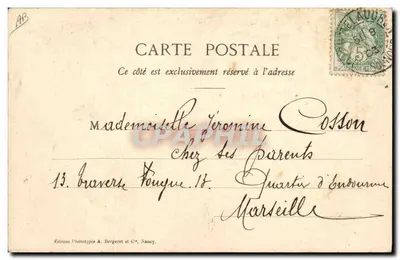 AB
CARTE POSTALE
Ce côté est exclusivement réservé à l'adresse
Mademoiselle Jeromine Cosson
chez ses parents
13. Traverse 17. Quartier d'Endoume
Marseille
Edition Phototypie A. Bergeret et Cie, Nancy.